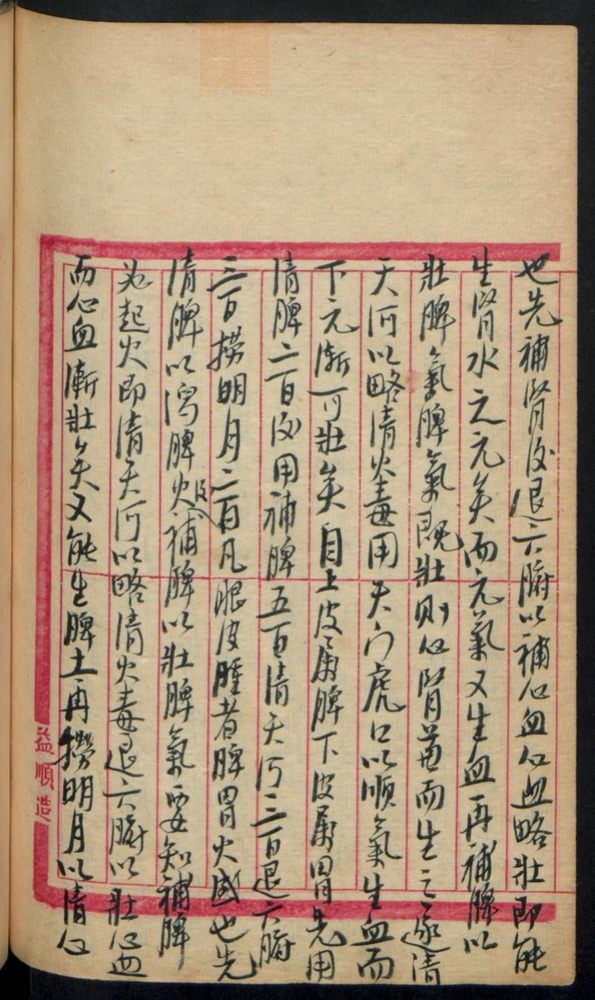 也先補腎後退六腑以補心血心血略壯即能
生腎水之元矣而元氣又生血再補脾以
壯脾氣脾氣既壯則心腎並而生之遂清
天河以略清火毒用天门虎口以順氣生血而
下元漸可壯矣目上皮属脾下皮属胃先用
清脾二百後用補脾五百清天河三百退六腑
三百捞明月二百凡眼皮腫者脾胃火盛也先
清脾以瀉脾火後補脾以壯脾氣要知補脾
必起火即清天河以略清火毒退六腑以壯心血
而心血漸壯矣又能生脾土再撈明月以清心
益順造